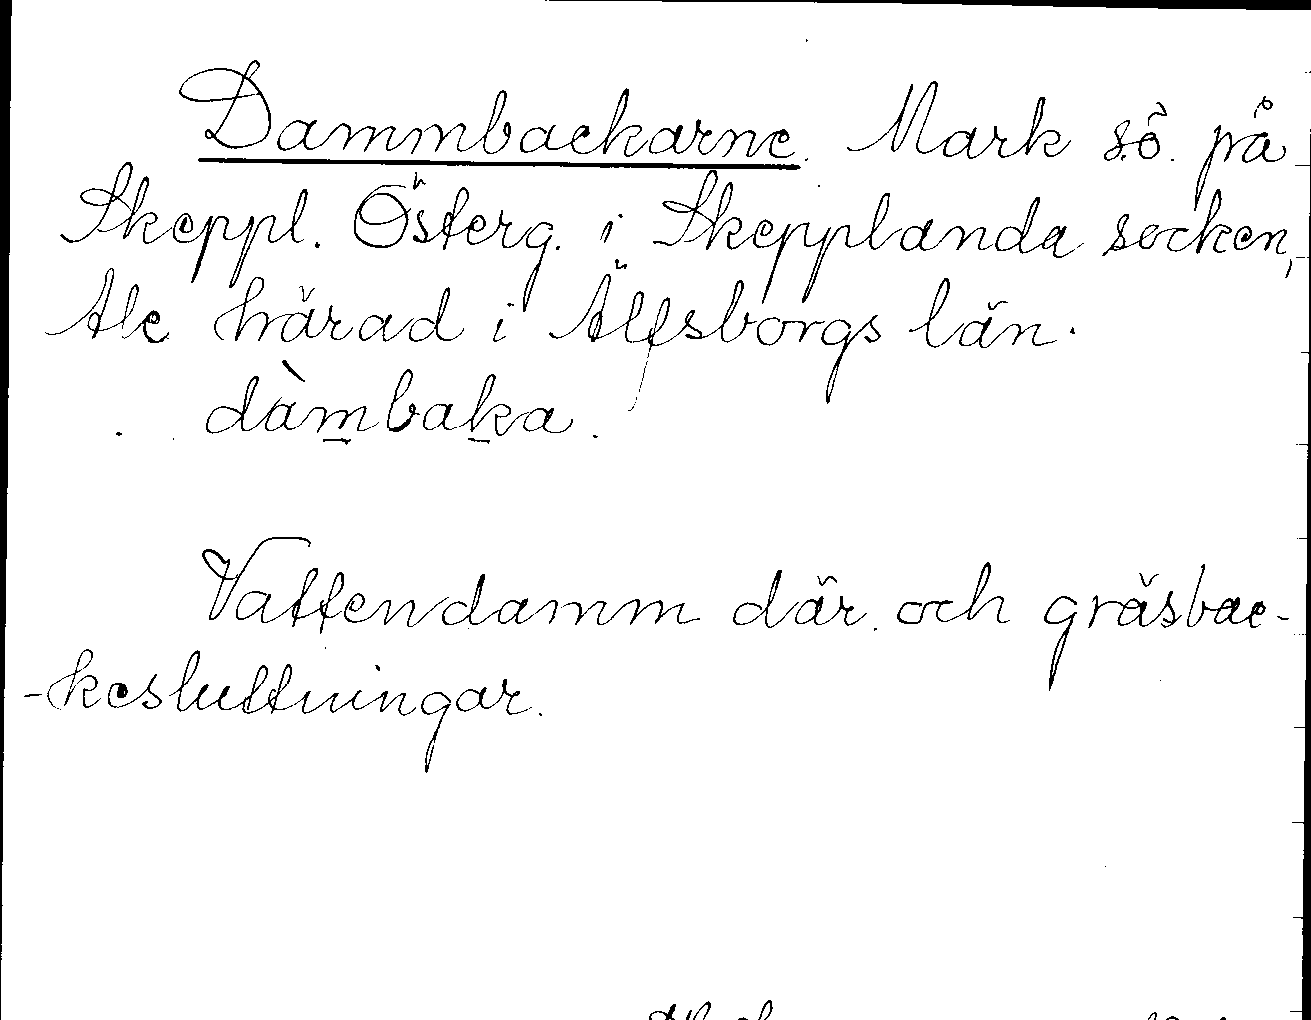 Dammbackarne. Mark s.ö. på
Skeppl. Österg. i Skepplanda socken,
Ale härad i Älfsborgs län.
dàm̲bak̲a.
Vattendamm där och gräsbac-
-kesluttningar.